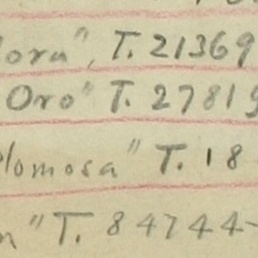 lora", T. 21369
Oro" T. 27819
lomosa" T. 18
" T. 84744-